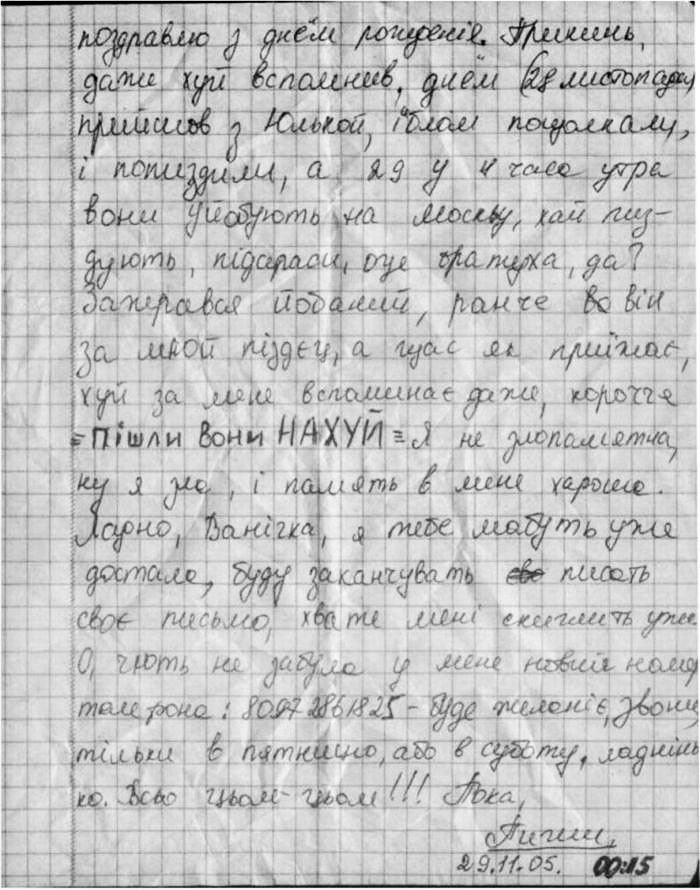 поздравлю з днём рождєнія. Прикинь,
даже хуй вспомнив, днём (28 листопада)
прийшов з Юлькой, їблом пощолкали,
і попиздили, а 29 у 4 часа утра
вони уйобують на Москву, хай пиз-
дують, підараси, оце братуха, да?
Зажерався йобаний, ранче во він
за мной піздєц, а щас як приїжає,
хуй за мене вспоминає даже, корочє
≡ Пішли вони НАХУЙ ≡ Я не злопамятна,
ну я зла, і память в мене хароша.
Ладно, Ванічка, я тебе мабуть уже
достала, буду заканчувать писать
своє письмо, хвате мені скиглить уже
О, чють не забула у мене новий номер
телефона: 80972861825 - буде желаніє, звони,
тільки в пятницю, або в суботу, ладнінь-
ко. Всьо цьом-цьом!!! Пока,
29.11.05. 00:15